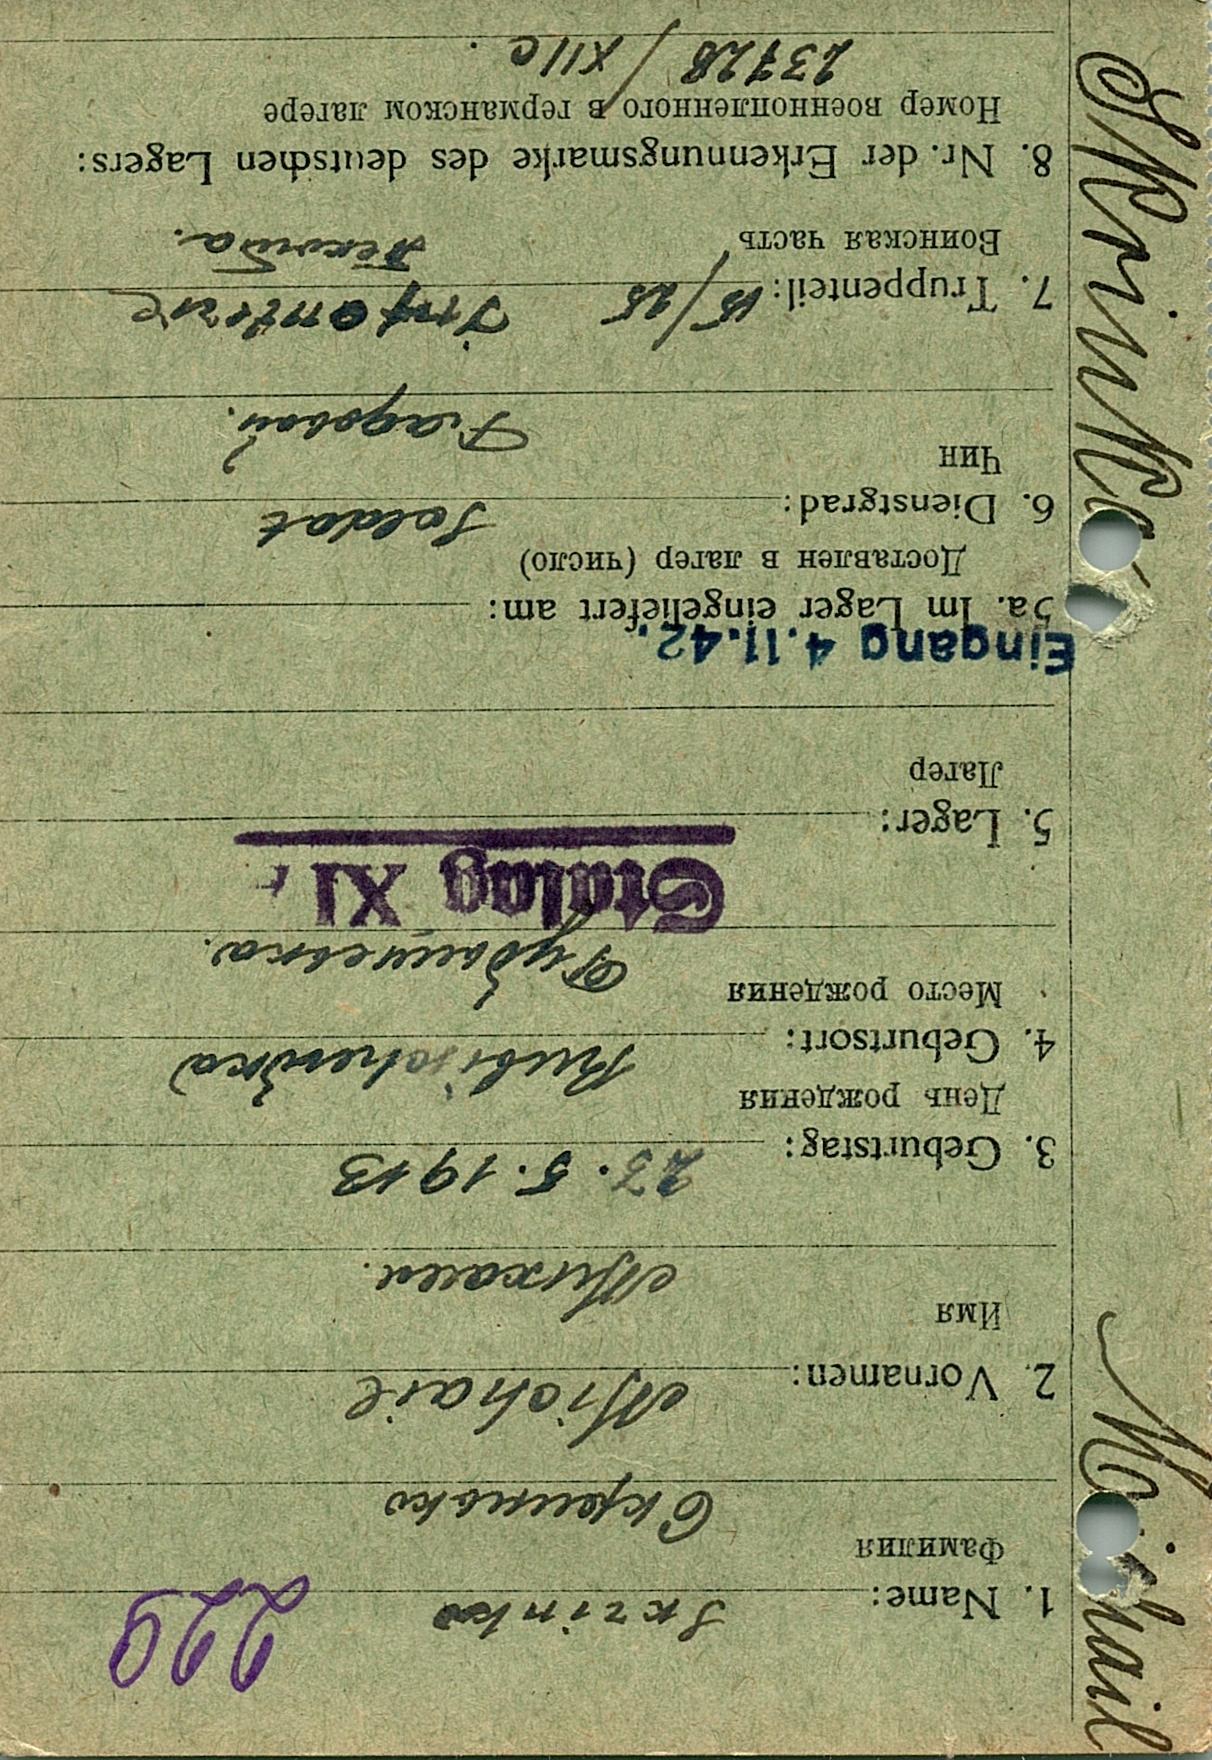 229
1. Name: Skrinko
Фамилия
Скринько
2. Vornamen: Michail
Имя
Михаил.
3. Geburtstag: 23.5.1913
День рождения
4. Geburtsort:
Место рождения
Stalag XI
5. Lager:
Лагерь
Eingang 4.11.42.
5a. Im Lager eingeliefert am:
Доставлен в лагерь (число)
6. Dienstgrad: Soldat
Чин
Рядовой.
7. Truppenteil: 15/25 Infanterie
Воинская часть
Пехота.
8. Nr. der Erkennungsmarke des deutschen Lagers:
Номер военнопленного в германском лагере
23728/XIIC.
Michail Skrinko